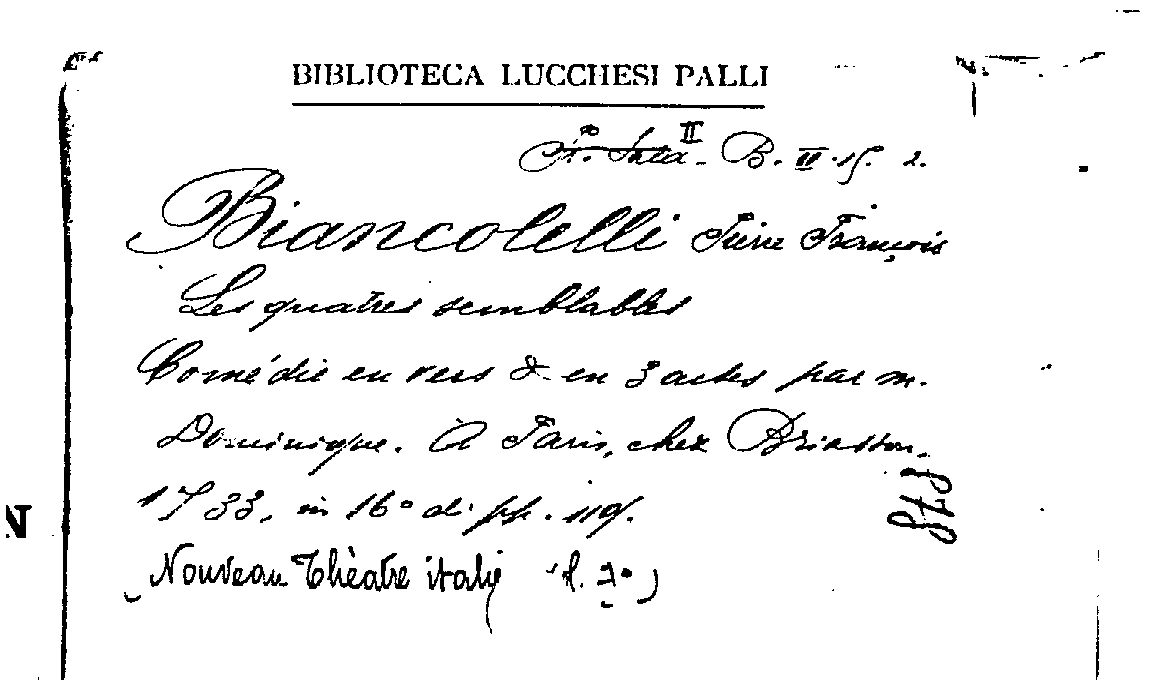 BIBLIOTECA LUCCHESI PALLI
II B. II. 15. 2.
Biancolelli Pierre François
Les quatres semblables
Comédie en vers & en 3 actes par m.
Dominique. A Paris, chez Briasson,
1733, in 16° di pp. 119.
(Nouveau Thèatre italie
N